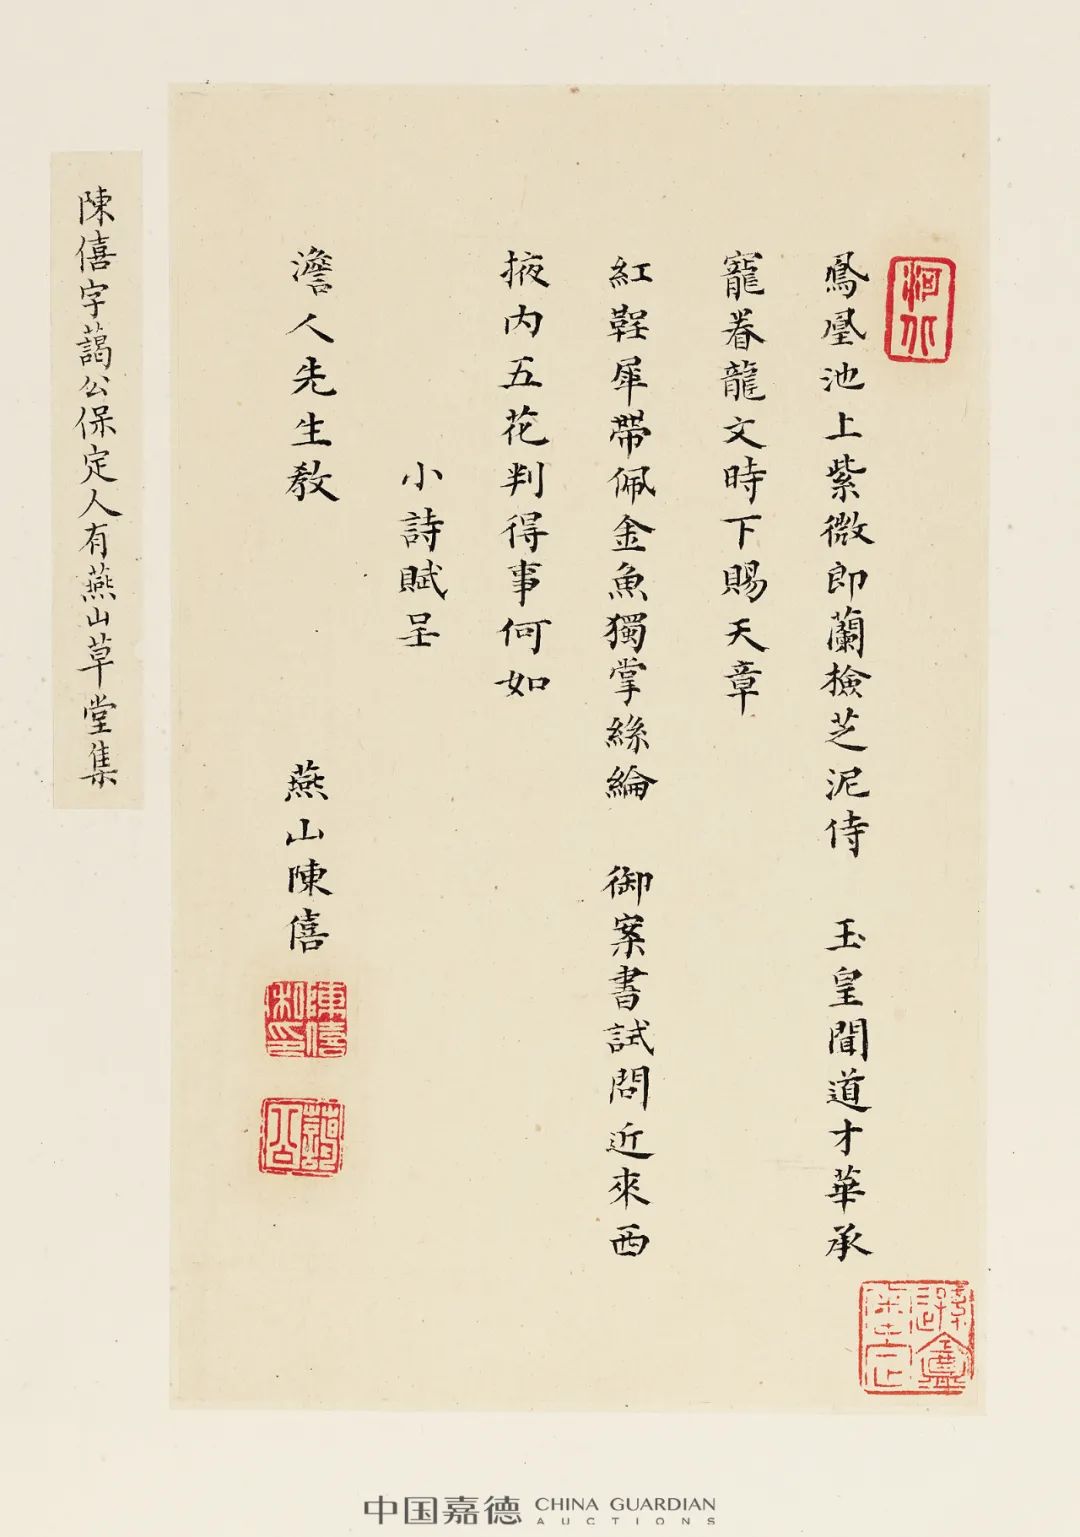 鳳凰池上紫微郎蘭檢芝泥侍 玉皇聞道才華承
寵眷龍文時下賜天章
紅鞓犀帶佩金魚獨掌絲綸 御案書試問近來西
掖内五花判得事何如
小詩賦呈
澹人先生教
燕山陳僖
陳僖私印
藹公
陳僖字藹公保定人有燕山草堂集
中国嘉德 CHINA GUARDIAN
AUCTIONS